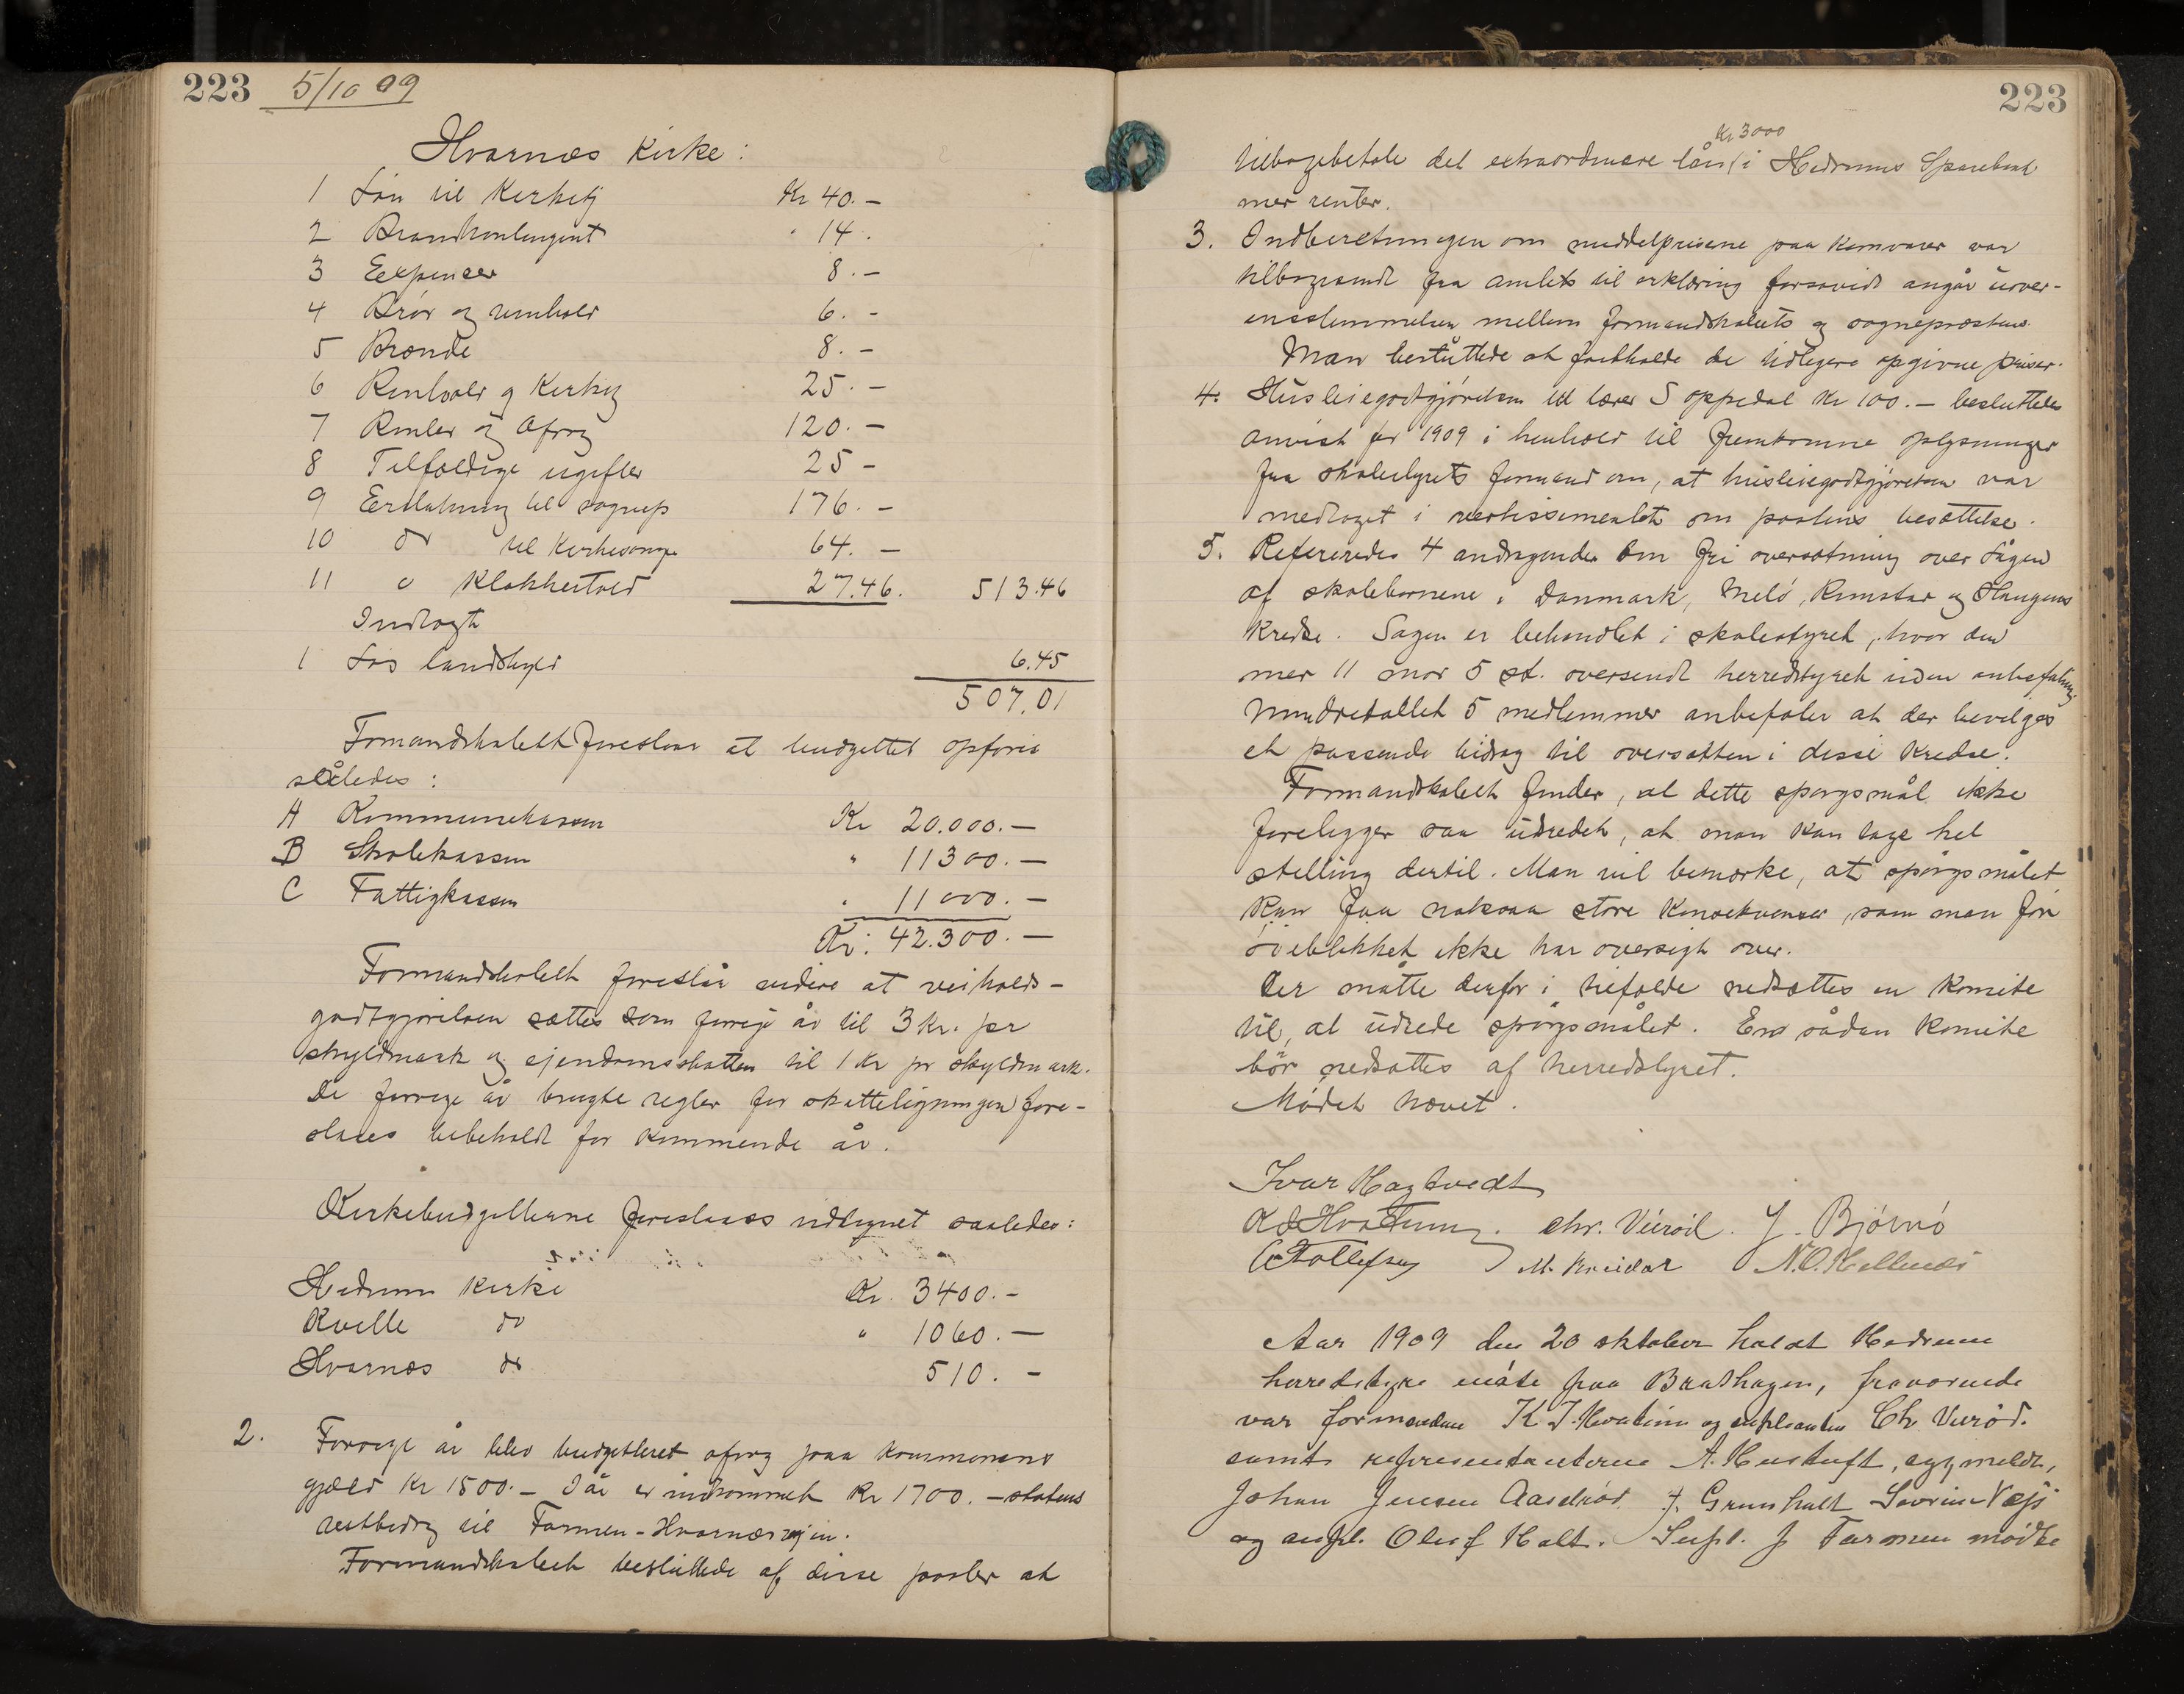 223 5/10 09
Hvarnæs Kirke:
1 Løn til Kirketj Kr 40.-
2 Brandkontingent " 14.
3 Expenser 8.-
4 Brød og 6.-
5 Brænde 8.-
6 Renhold og Kirketj 25.-
7 Renter og Afdrag 120.-
8 Tilfældige ugifter 25-
9 Erstatning til sognep 176.-
10 do til Kirkesanger 64.-
11 " Klokkertold 27.46. 513.46
Indtægt
1 Løs landskyld 6.45
507.01
Formandskabet foreslaar at budgettet opføres
således:
A Kommunekassen Kr 20.000.-
B Skolekassen " 11300.-
C Fattigkassen " 11000.-
Kr: 42.300.-
Formandskabet foreslår videre at veiholds-
godtgjørelsen sættes som forrige år til 3 Kr. pr
skyldmark og ejendomsskatten til 1 Kr pr skyldmark.
De forrige år brugte regler for skatteligningen fore-
slaaes bibeholdt for kommende år.
Kirkebudgetterne foreslaaes udlignet saaledes:
Hedrum Kirke Kr. 3400.-
Kvelle do " 1060.-
Hvarnes do 510.-
2. Forrige år blev budgetteret afdrag paa kommunens
gjæld Kr 1500.- I år er indkommet Kr 1700.- statens
restbidrag til Farmen-Hvarnæsvejen.
Formandskabet besluttede af disse poster at
223
Kr 3000
tilbagebetale det extraordinære lån i Hedrums Sparebank
med renter.
3. Indberetningen om middelpriserne paa kornvarer var
tilbagesendt fra amtet til erklæring forsavidt angår uover-
ensstemmelsen mellem formandskabets og sogneprestens.
Man besluttede at fastholde de tidligere opgivne priser.
4. Husleiegodtgjørelsen til lærer S Oppedal Kr 100.- besluttedes
anvist for 1909 i henhold til fremkomne oplysninger
fra skolestyrets formand om, at husleiegodtgjørelsen var
medtaget i avertissementet om postens besættelse.
5. Refereredes 4 andragender om fri oversætning over Lågen
af skolebørnene i Danmark, Melø, Rimstad og Haugens
Kredse. Sagen er behandlet i skolestyret, hvor den
med 11 mod 5 st. oversendt herredstyret uden anbefaling.
Mindretallet 5 medlemmer anbefaler at der bevilges
et passende bidrag til oversætten i disse kredse.
Formandskabet finder, at dette spørgsmål ikke
foreligger saa udredet, at man kan tage hel
stelling dertil. Man vil bemærke, at spørgsmålet
kan faa noksaa store konsekvenser, som man for
øieblikket ikke har oversigt over.
Der måtte derfor i tilfælde nedsættes en komite
til, at udrede spørgsmålet. En sådan komite
bør nedsættes af herredstyret.
Mødet hævet.
Ivar Hagtvedt
K J Hvatum. Chr. Vierød. J. Bjørnø
Tollefsen M. N.O. Hellenes
Aar 1909 den 20 oktober holdt Hedrum
herredstyre møte paa Baashagen, fraværende
var formanden K J. Hvatum og suplanten Ch Vierød.
samt representanterne A. , sygmeldt,
Johan Jensen Aasdrød, J. Grønholt
og supl. Oluf Holt. Supl. J Farmen mødte